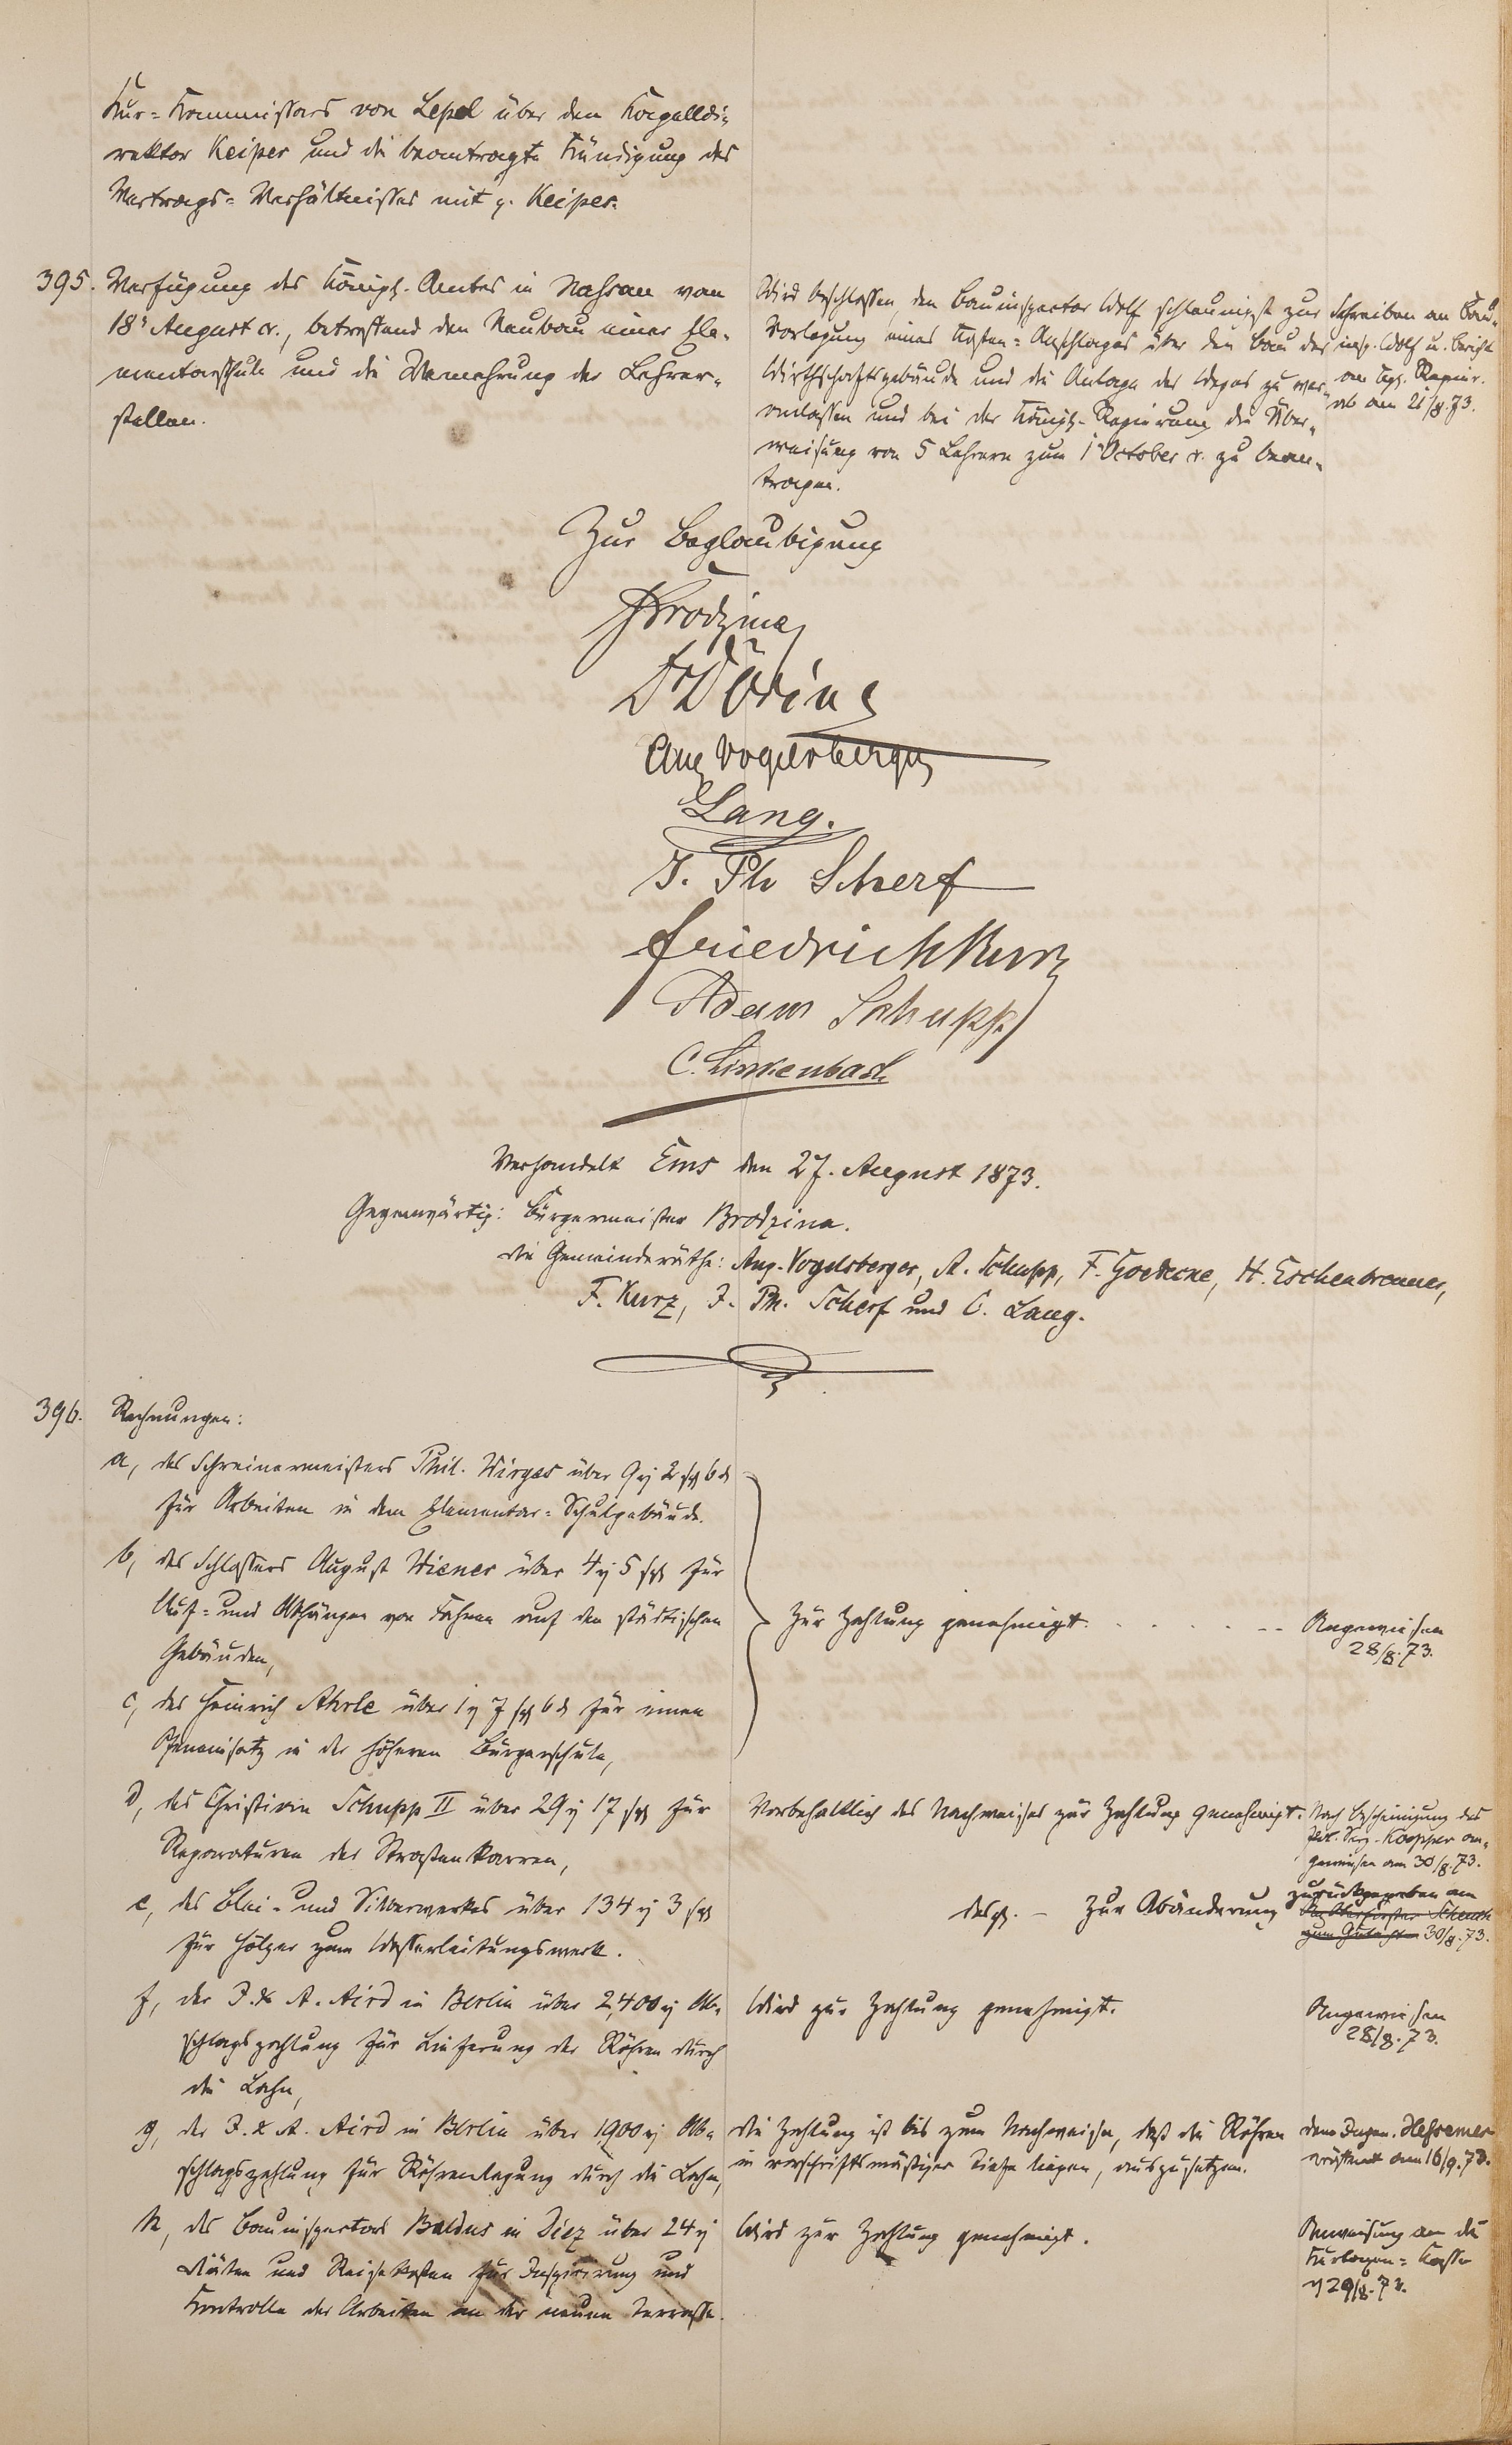 Kur-Kommissars von Lepel über den Kapelldi-
rektor Keiper und die beantragte Kündigung des
Vertrags-Verhältnisses mit p. Keiper.
395. Verfügung des Königl. Amtes in Nassau vom
18t August cr., betreffend den Neubau einer Ele-
mentarschule und die Vermehrung der Lehrer-
stellen.
Wird beschlossen, den Bauinspector Wolf schleunigst zur
Vorlegung eines Kosten-Anschlages über den Bau des
Wirthschaftsgebäude und die Anlage des Weges zu ver-
anlassen und bei der Königl. Regierung die Über-
weisung von 5 Lehrern zum 1t October cr. zu bean-
tragen.
Schreiben an Bau-
insp. Wolf u. Bericht
an Kgl. Regier.
ab am 21/8.73.
Zur Beglaubigung
Brodzina
Dr Döring
Aug Vogelsberger
Lang.
J. Ph Scherf
Friedrich Kurz
Adam Schupp
C. Linkenbach
Verhandelt Ems den 27. August 1873.
Gegenwärtig: Bürgermeister Brodzina.
die Gemeinderäthe: Aug. Vogelsberger, A. Schupp, F. Goedecke, H. Eschenbrenner,
F. Kurz, J. Ph. Scherf und C. Lang.
396. Rechnungen:
a, des Schreinermeisters Phil. Wirges über 9 2 sgr 6 d
für Arbeiten in dem Elementar-Schulgebäude.
b, des Schlossers August Wiener über 4 5 sgr für
Auf- und Abhängen von Fahnen auf den städtischen
Gebäuden,
c, des Heinrich Ahrle über 1 7 sgr 6 d für einen
Ofeneinsatz in der höheren Bürgerschule,
Zur Zahlung genehmigt.
Angewiesen
28/8.73.
d, des Christian Schupp II über 29 17 sgr für
Reparaturen der Straßenkarren,
Vorbehaltlich des Nachweises zur Zahlung genehmigt.
Nach Bescheinigung des
Serg. Koepper an-
gewiesen am 30/8.73.
e, des Blei- und Silberwerkes über 134 3 sgr
für Hölzer zum Wasserleitungswerk.
desgl. - Zur Abänderung zurückgegeben am
An Oberförster Schenck
zum Gutachten 30/8.73.
f, der J. & A. Aird in Berlin über 2,400 Ab-
schlagszahlung für Lieferung der Röhren durch
die Lahn,
Wird zur Zahlung genehmigt.
Angewiesen
28/8.73.
g, der J. & A. Aird in Berlin über 1900 Ab-
schlagszahlung für Röhrenlegung durch die Lahn,
Die Zahlung ist bis zum Nachweise, daß die Röhren
in vorschriftsmäßiger Tiefe liegen, auszusetzen.
dem Ingen. Hessemer
eröffnet am 16/9.73.
h, des Bauinspectors Baldus in Diez über 24
Diäten und Reisekosten für Inspicirung und
Kontrolle der Arbeiten an der neuen Terrasse.
Wird zur Zahlung genehmigt.
Anweisung an die
Kurtaxen-Kasse
29/8.73.